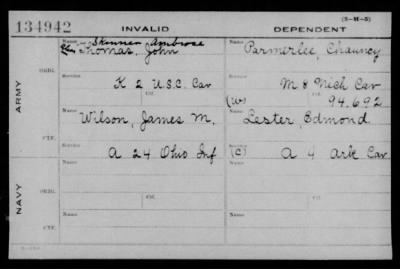 134942 INVALID DEPENDENT
(3-H-5)
Name Skinner Ambrose Name
Thomas, John Parmerlee, Chauncy
ORIG.
Service Service
K 2 U.S.C. Cav M 8 Mich Cav
ARMY
(W) 94.692
Name Name
Wilson, James M. Lester, Edmond
CTF.
Service Service
A 24 Ohio Inf (C) A 4 Ark Cav
Name Name
ORIG.
NAVY
Name Name
CTF.